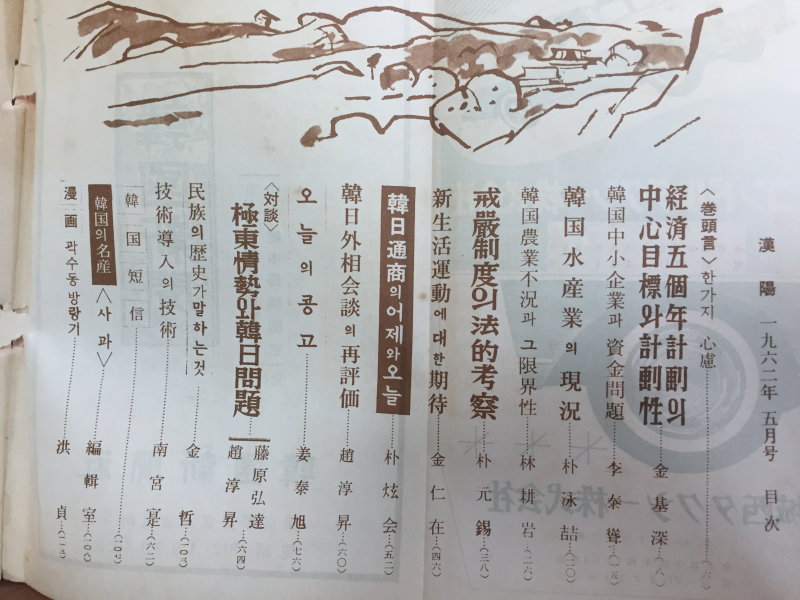 漢陽 一九六二年 五月号 目次
〈巻頭言〉한가지 心慮……(六)
経済五個年計劃의
中心目標와計劃性……金基深…(八)
韓国中小企業과 資金問題……李泰聳…(一五)
韓国水産業의 現況……朴泳喆…(二〇)
韓国農業不況과 그限界性……林耕岩…(二六)
戒嚴制度의法的考察……朴元錫…(三八)
新生活運動에 대한 期待……金仁在…(四六)
韓日通商의어제와오늘……朴炫会…(五二)
韓日外相会談의 再評価……趙淳昇…(六〇)
오늘의 콩고……姜泰旭…(七六)
〈対談〉
極東情勢와韓日問題……
藤原弘達
趙淳昇…(六四)
民族의歴史가말하는것……金哲…(一〇三)
技術導入의 技術……南宮寔…(六二)
韓国短信……(一〇七)
韓国의名産〈사과〉……編輯室…(一〇八)
漫画 곽수동방랑기……洪貞…(一一三)
タクシー株式会社